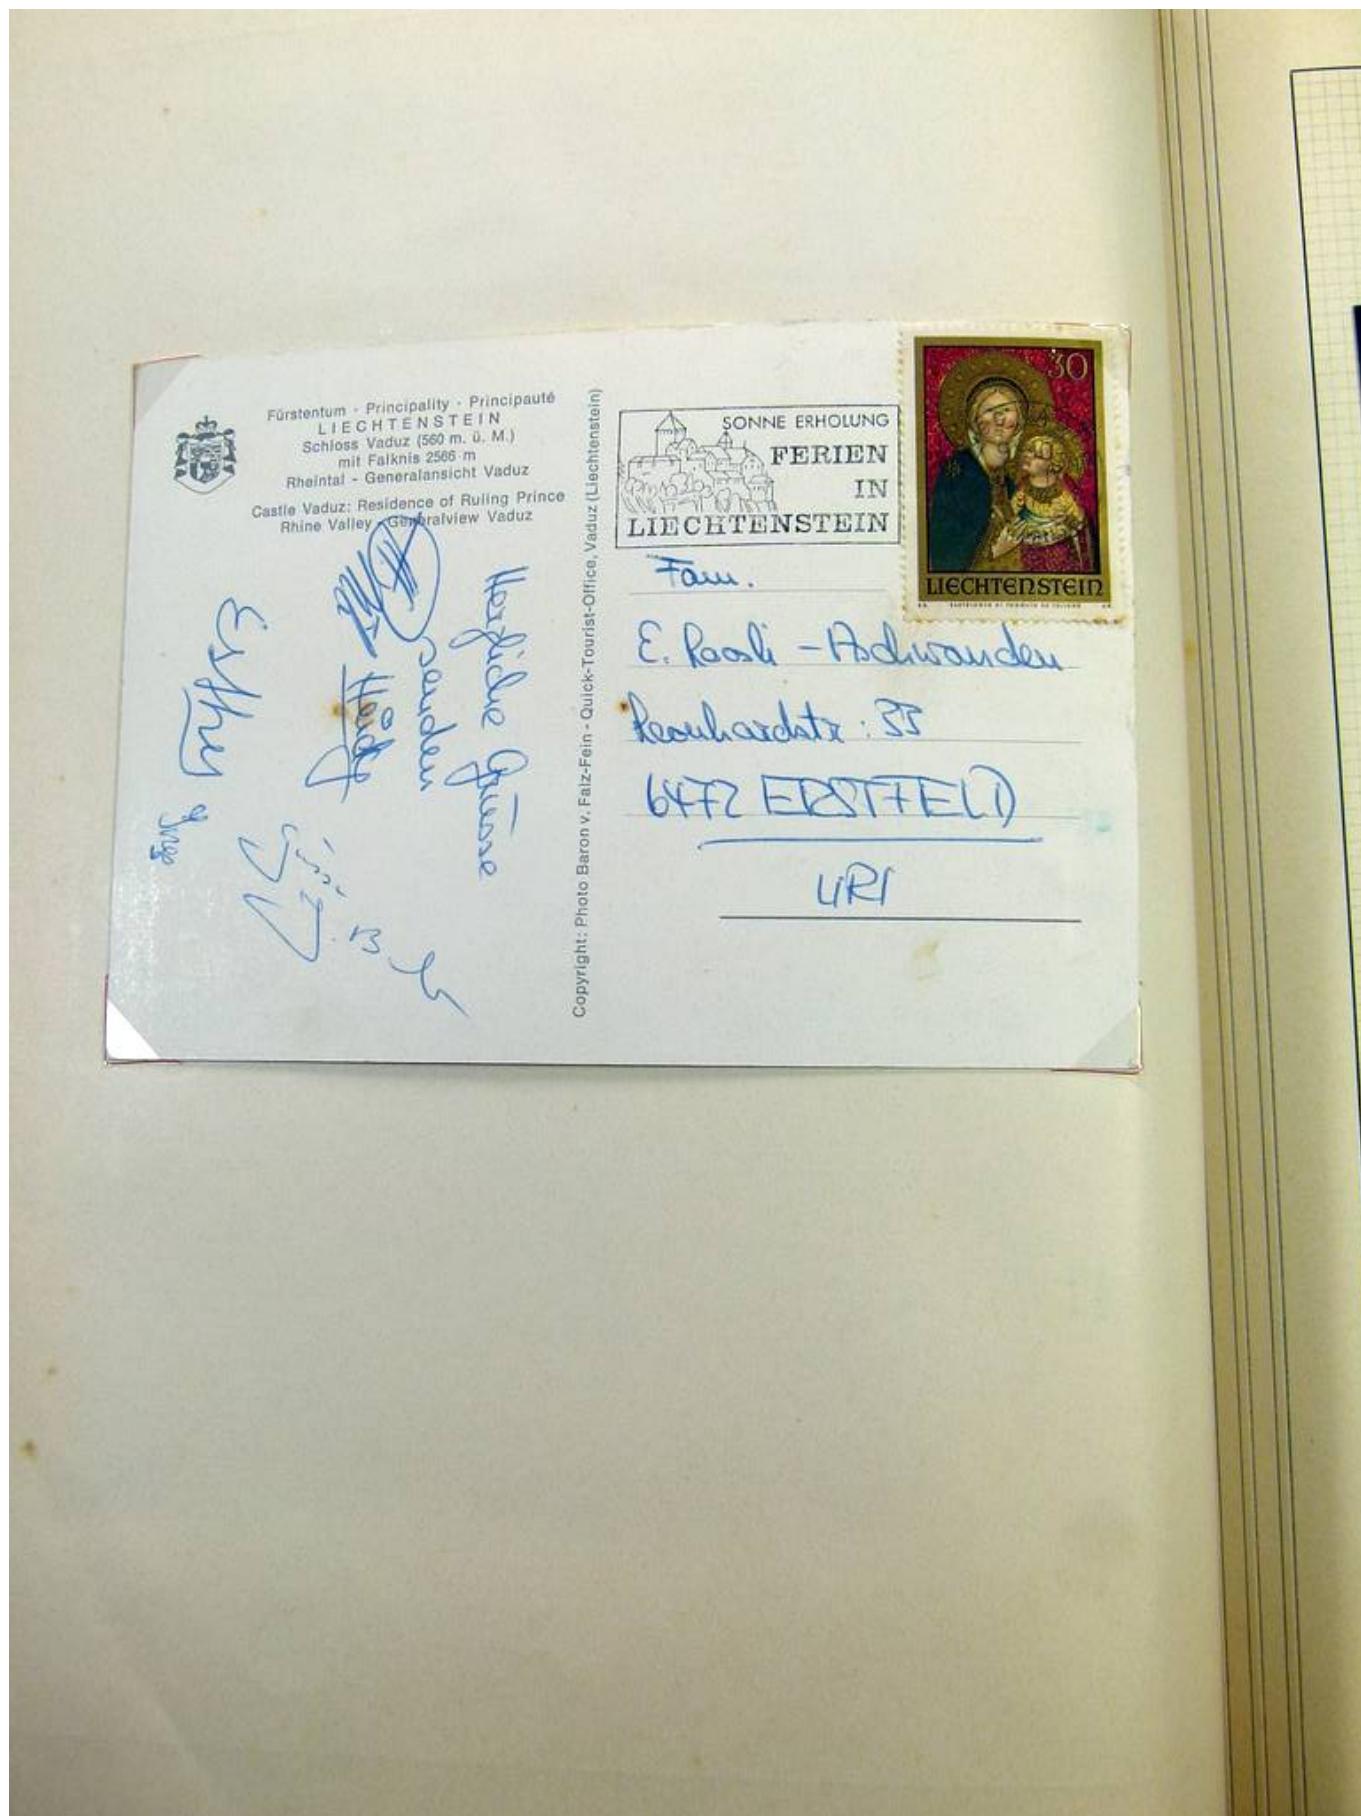 Fürstentum - Principality - Principauté
LIECHTENSTEIN
Schloss Vaduz (560 m. ü. M.)
mit Falknis 2566 m
Rheintal - Generalansicht Vaduz
Castle Vaduz: Residence of Ruling Prince
Rhine Valley - Generalview Vaduz
Herzliche Grüsse
senden
Heidy
Esther
Inge
Copyright: Photo Baron v. Falz-Fein - Quick-Tourist-Office, Vaduz (Liechtenstein)
SONNE ERHOLUNG
FERIEN
IN
LIECHTENSTEIN
30
LIECHTENSTEIN
Fam.
E. - Aschwanden
Leonhardstr: 33
6472 ERSTFELD
URI